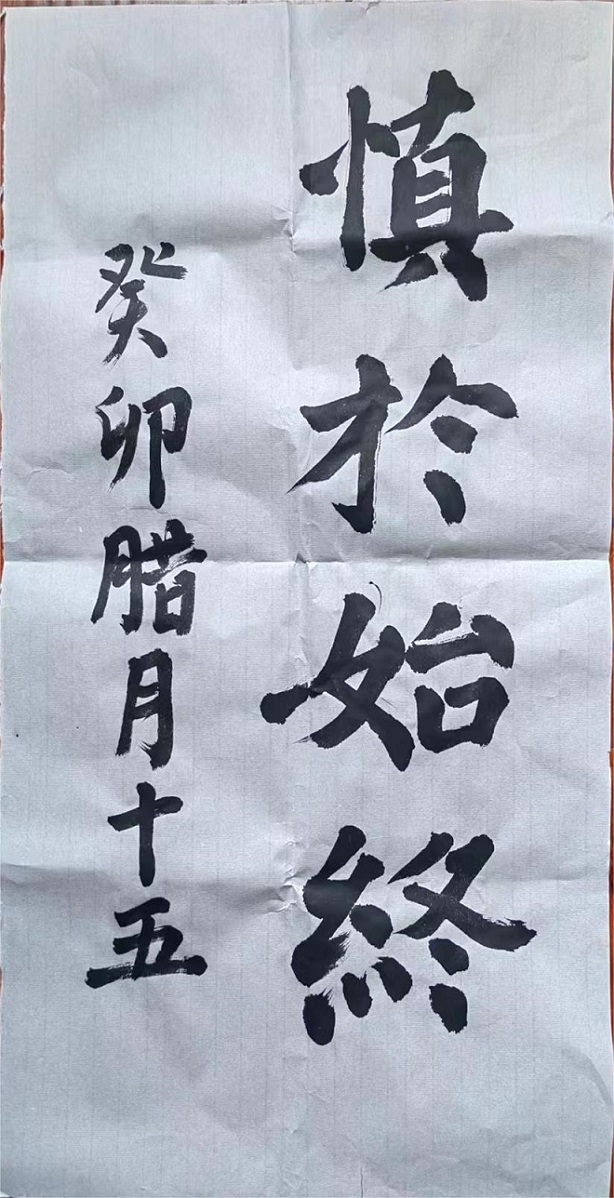 慎於始終
癸卯腊月十五